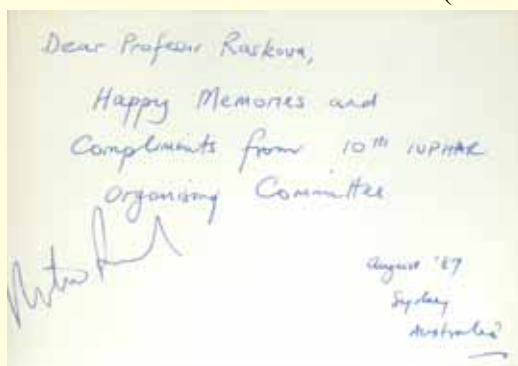 Dear Professor Raskova,
Happy Memories and
Compliments from 10TH IUPHAR
Organising Committee
August '87
Sydney
Australia